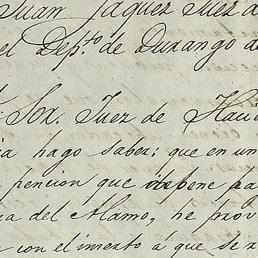 Juan Jaquez Juez d
el Depto. de Durango d
Sor. Juez de Haci
ia hago saber: que en un
pencion que debene pa
na del Alamo, he prov
con el inserto á que se r